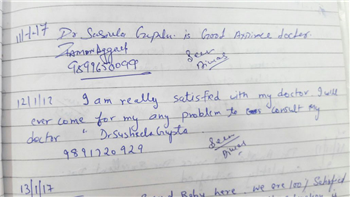 11/1/17 Dr Susheela Gupta is Good doctor
9899650099
Seen
12/1/17 I am really satisfied with my doctor I will
ever come for my any problem to consult my
doctor " Dr Susheela Gupta
9891720929
Seen
13/1/17 Baby here. we are 100% Satisfied